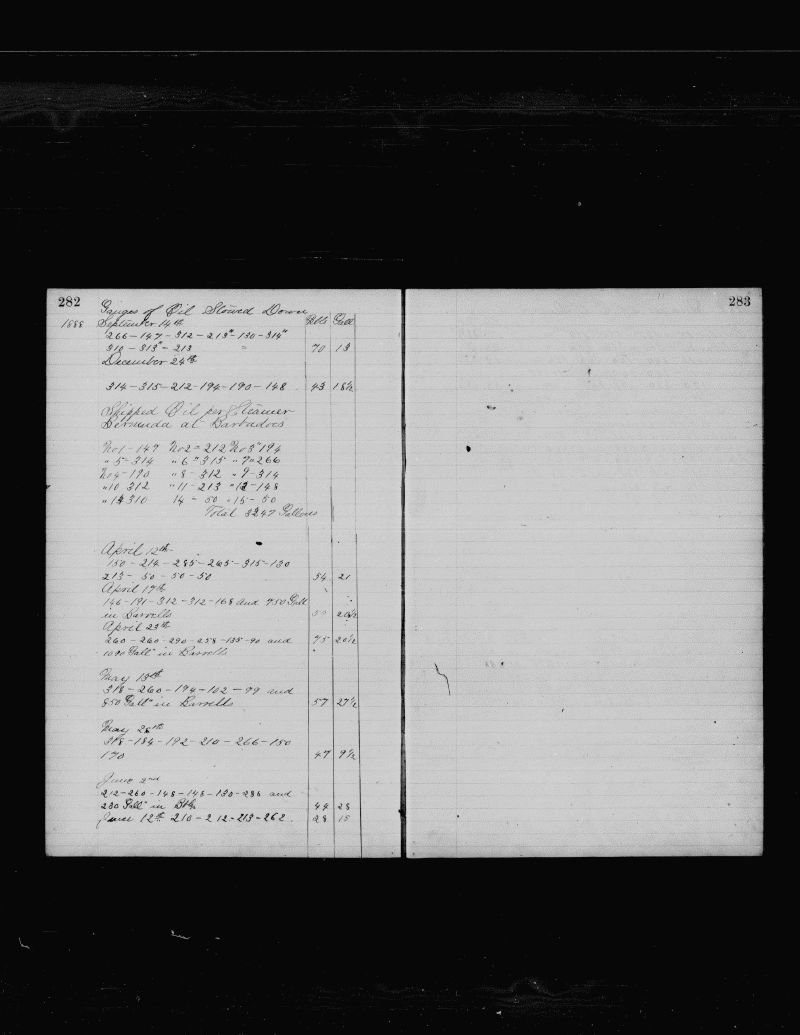 282
Gauges of Oil Stowed Down
1888 September 14th Bbls Gall
266-147-312-213"-130-314"
310-313"-213 " 70 13
December 24th
314-315-212-194-190-148 43 18½
Shipped Oil per Steamer
Bermuda at Barbadoes
No1-147 No2=212 No3"194
"5-314 "6"315 "7"266
No4-190 "8-312 "9-314
"10 312 "11-213 "12-148
"13 310 14=50 "15-50
Total 3247 Gallons
April 12th
150-214-285-265-315-130
213-50-50-50 54 21
April 17th
146-191-312-312-168 and 750 Gall
in Barrells 59 26½
April 29th
260-260-290-258-135-90 and 75 20½
1090 Galls in Barrells
May 19th
318-260-194-102-99 and
850 Galls in Barrells 57 27½
May 28th
318-184-192-210-266-150
170 47 9½
June 2nd
212-260-148-148-130-286 and
230 Galls in Bbls 44 28
June 12th 210-212-213-262 28 15
283